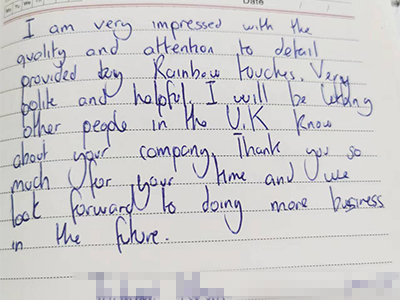 Date
I am very impressed with the
quality and attention to detail
provided by Rainbow touches. Very
polite and helpful. I will be letting
other people in the U.K know
about your company. Thank you so
much for your time and we
look forward to doing more business
in the future.